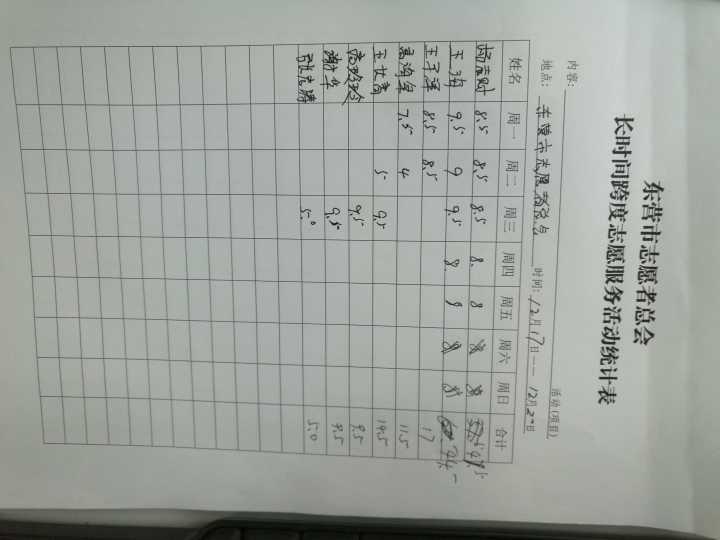 东营市志愿者总会
长时间跨度志愿服务活动统计表
内容: 活动(项目)
地点: 东营市志愿者总会 时间: 12月17日——12月2日
姓名 周一 周二 周三 周四 周五 周六 周日 合计
8.5 8.5 8.5 8. 8
王海 9.5 9 9.5 8. 8 44
王子洋 8.5 8.5 17
7.5 4 11.5
5 9.5 14.5
9.5 9.5
谢华 9.5 9.5
5.0 5.0